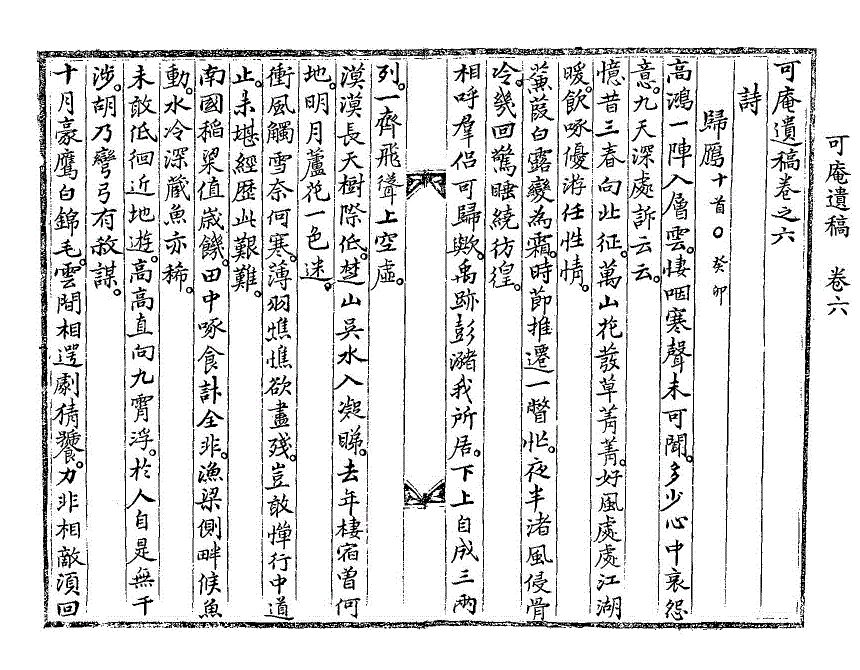 可庵遺稿 卷六
可庵遺稿卷之六
詩
歸鴈 十首○癸卯
高鴻一陣入層雲悽咽寒聲未可聞多少心中哀怨
意九天深處訴云云
憶昔三春向北征萬山花發草菁菁好風處處江湖
暖飮啄優游任性情
蒹葭白露變爲霜時節推遷一瞥忙夜半渚風侵骨
冷幾回驚睡繞彷徨
相呼羣侶可歸歟禹跡彭瀦我所居下上自成三兩
列一齊飛聳上空虛
漠漠長天樹際低楚山吳水入凝睇去年棲宿曾何
地明月蘆花一色迷
衝風觸雪奈何寒薄羽憔憔欲盡殘豈敢憚行中道
止未堪經歷此艱難
南國稻梁值歲饑田中啄食計全非漁梁側畔候魚
動水冷深藏魚亦稀
未敢低徊近地遊高高直向九霄浮於人自是無干
涉胡乃彎弓有敘謀
十月豪鷹白錦毛雲間相逻劇猜饕力非相敵須回